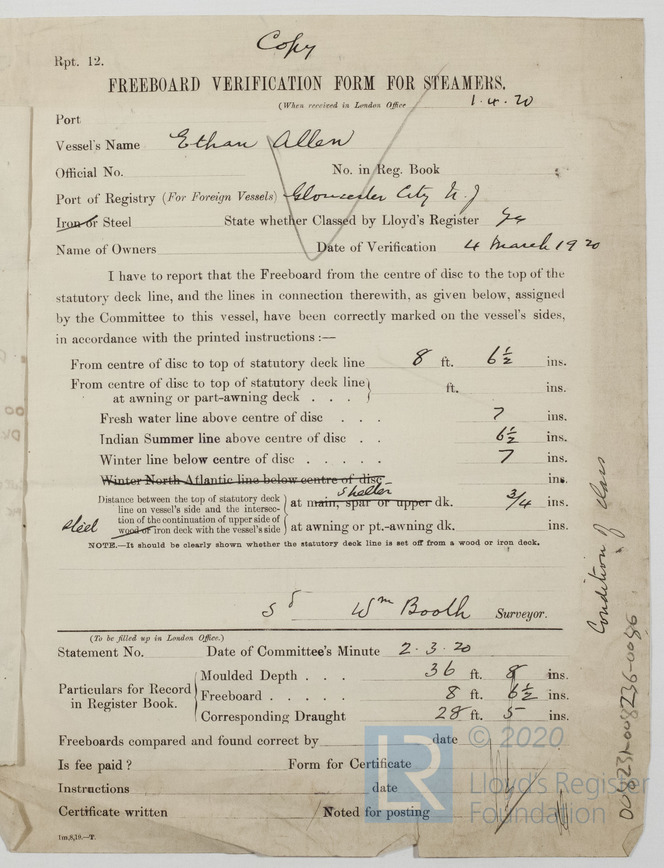 Copy
Rpt. 12.
FREEBOARD VERIFICATION FORM FOR STEAMERS.
(When received in London Office 1.4.20
Port
Vessel's Name Ethan Allen
Official No. No. in Reg. Book
Port of Registry (For Foreign Vessels) Gloucester City N.J
Iron or Steel State whether Classed by Lloyd's Register Yes
Name of Owners Date of Verification 4 March 1920
I have to report that the Freeboard from the centre of disc to the top of the
statutory deck line, and the lines in connection therewith, as given below, assigned
by the Committee to this vessel, have been correctly marked on the vessel's sides,
in accordance with the printed instructions :—
From centre of disc to top of statutory deck line 8 ft. 6½ ins.
From centre of disc to top of statutory deck line
at awning or part-awning deck . . . ft. ins.
Fresh water line above centre of disc . . . 7 ins.
Indian Summer line above centre of disc . . 6½ ins.
Winter line below centre of disc . . . . . 7 ins.
Winter North Atlantic line below centre of disc ins.
Distance between the top of statutory deck
line on vessel's side and the intersec-
tion of the continuation of upper side of
steel wood or iron deck with the vessel's side
shelter
at main, spar or upper dk. 3/4 ins.
at awning or pt.-awning dk. ins.
NOTE.—It should be clearly shown whether the statutory deck line is set off from a wood or iron deck.
Sd Wm Booth Surveyor.
(To be filled up in London Office.)
Statement No. Date of Committee's Minute 2.3.20
Particulars for Record
in Register Book.
Moulded Depth . . . 36 ft. 8 ins.
Freeboard . . . . . 8 ft. 6½ ins.
Corresponding Draught 28 ft. 5 ins.
Freeboards compared and found correct by date
Is fee paid ? Form for Certificate
Instructions date
Certificate written Noted for posting
1m,8,19.—T.
Condition of class
008231-008236-0086
LR
© 2020
Lloyd's Register
Foundation